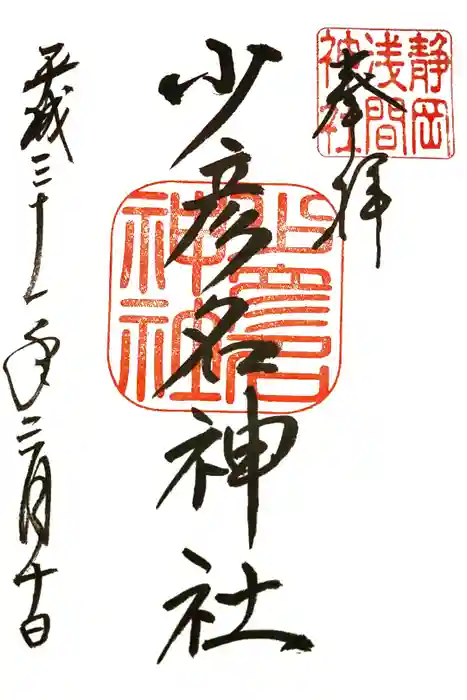 奉拝
静岡浅間神社
少彦名神社
少彦名神社
平成三十一年二月十日